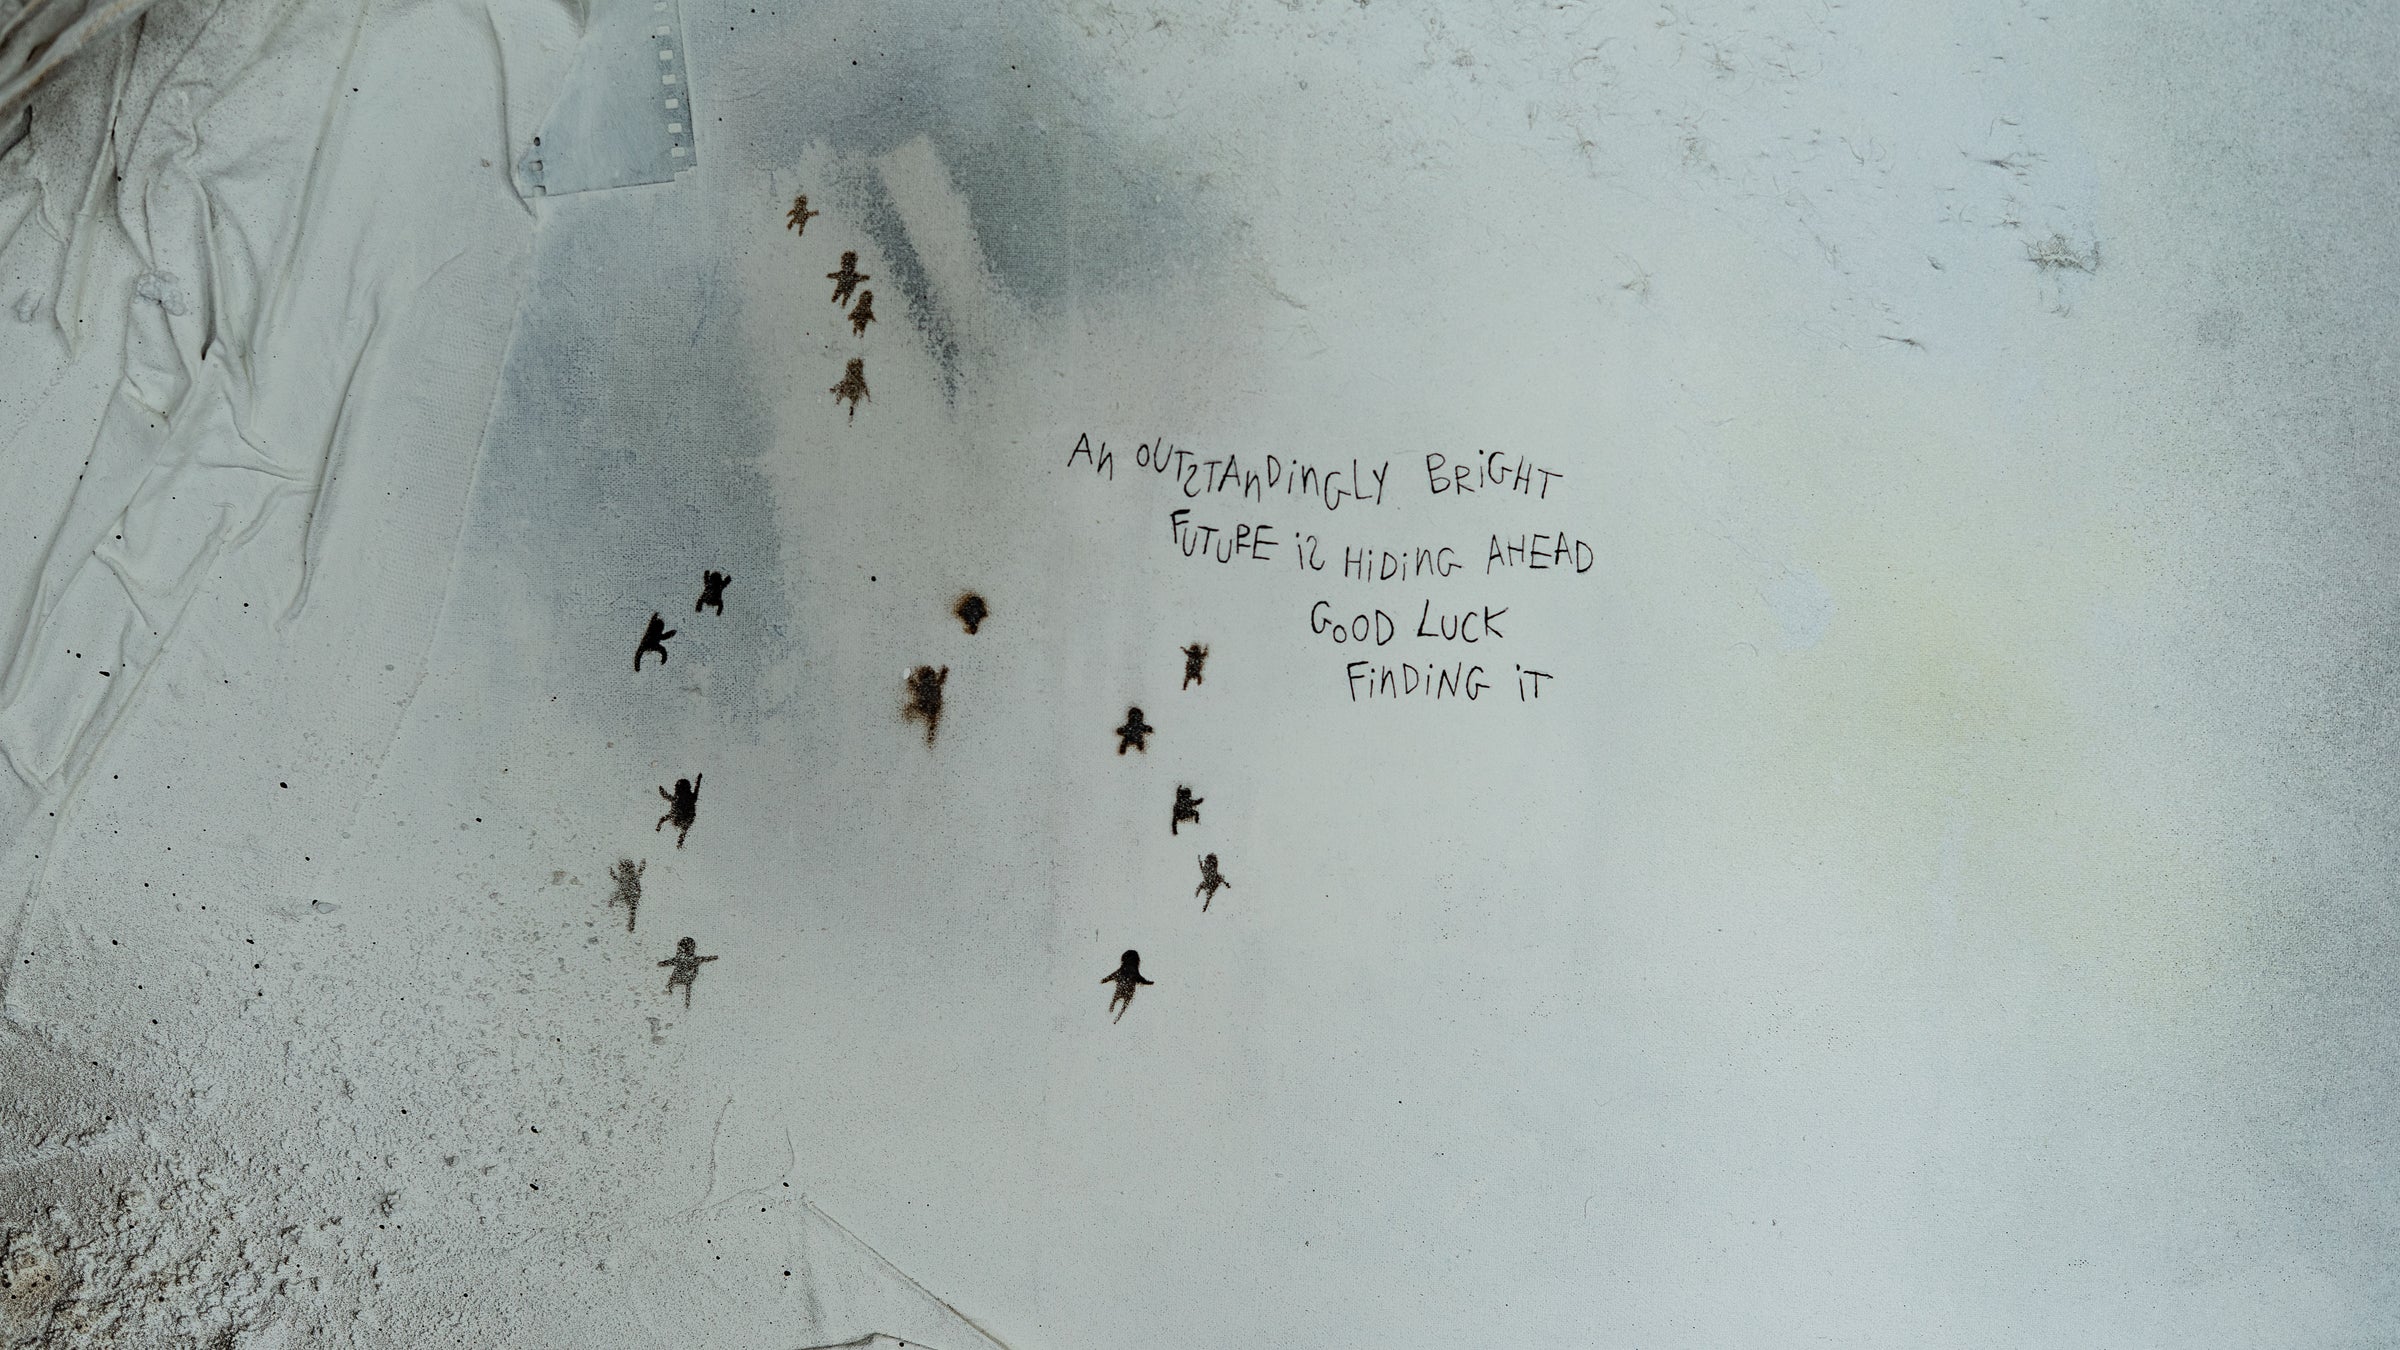 An OUTSTAnDinGLY BRiGHT
FUTURE iS HiDinG AHEAD
GoOD LUCK
FinDiNG iT